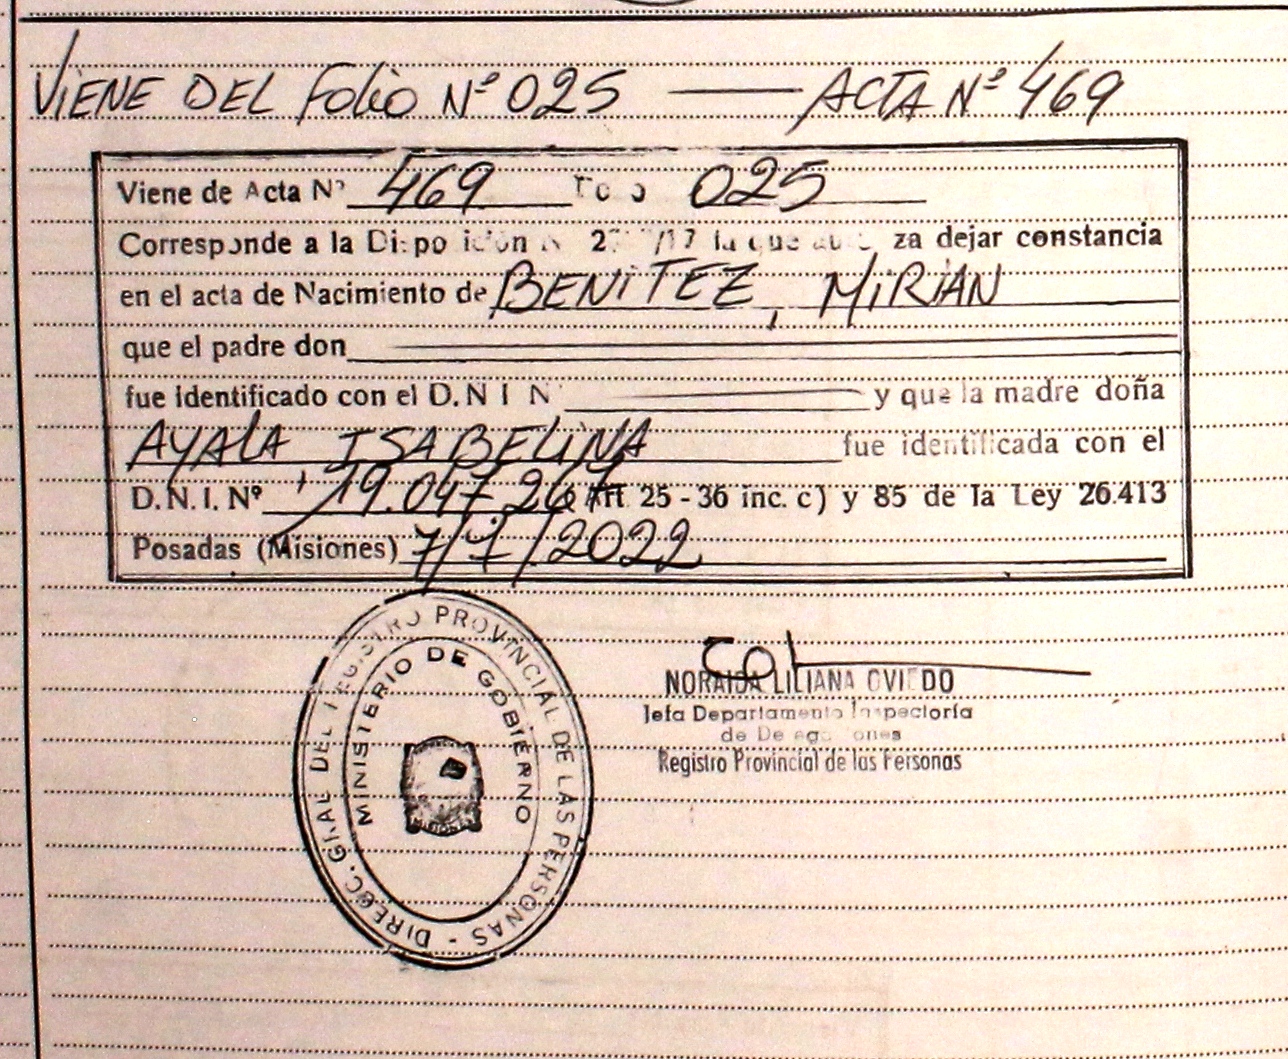 VIENE DEL Folio Nº 025 — ACTA Nº 469
Viene de Acta Nº 469 025
Corresponde a la la que za dejar constancia
en el acta de Nacimiento de BENITEZ, MIRIAN
que el padre don
fue identificado con el D.N I N y que la madre doña
AYALA ISABELINA fue identificada con el
D.N.I. Nº 19.047.267 Art 25 - 36 inc. c) y 85 de la Ley 26.413
Posadas (Misiones) 7/7/2022
DIRECC. GRAL DEL REGISTRO PROVINCIAL DE LAS PERSONAS -
MINISTERIO DE GOBIERNO
NORAIDA LILIANA OVIEDO
Jefa Departamento Inspectoría
de
Registro Provincial de las Personas